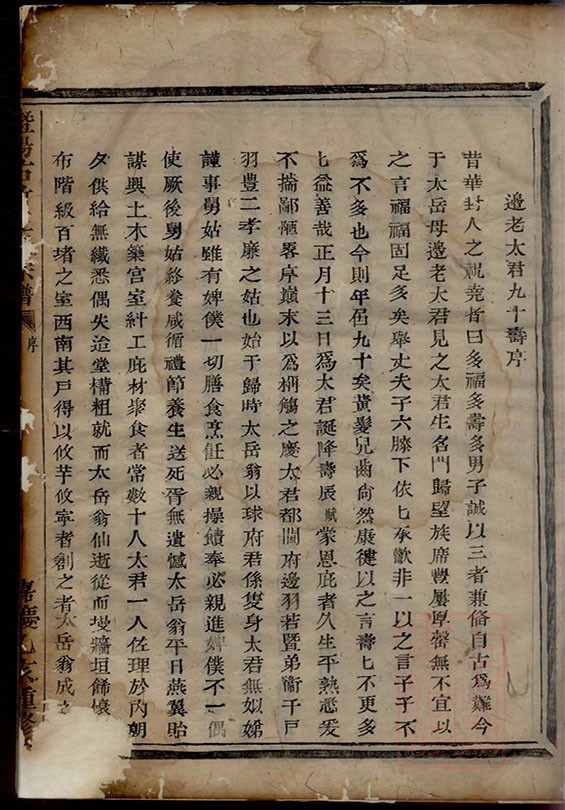 邉老太君九十壽序
昔華封人之祝堯者曰多福多壽多男子誠以三者兼備自古爲難今
于太岳母邉老太君見之太君生名門歸望族席豐屢厚罄無不宜以
之言福福固足多矣舉丈夫子六膝下依匕承歡非一以之言子子不
爲不多也今則年屆九十矣黃髮兒齒尙然康健以之言壽匕不更多
匕益善哉正月十三日爲太君誕降壽辰賦蒙恩庇者久生平熟悉爰
不揣鄙陋畧序巔末以爲稱觴之慶太君都閫府邉羽若暨弟衞千戶
羽豊二孝廉之姑也始于歸時太岳翁以球府君係隻身太君無姒娣
謹事舅姑雖有婢僕一切膳食烹飪必親操饋奉必親進婢僕不一偶
使厥後舅姑終養咸循禮節養生送死胥無遺憾太岳翁平日燕翼貽
謀興土木築宮室糾工庇材聚食者常數十人太君一人佐理於內朝
夕供給無纖悉偶失迨堂構粗就而太岳翁仙逝從而墁牆垣餙壊
布階級百堵之室西南其戶得以攸芋攸寧者創之者太岳翁成之
譜
序
嘉慶乙亥重修